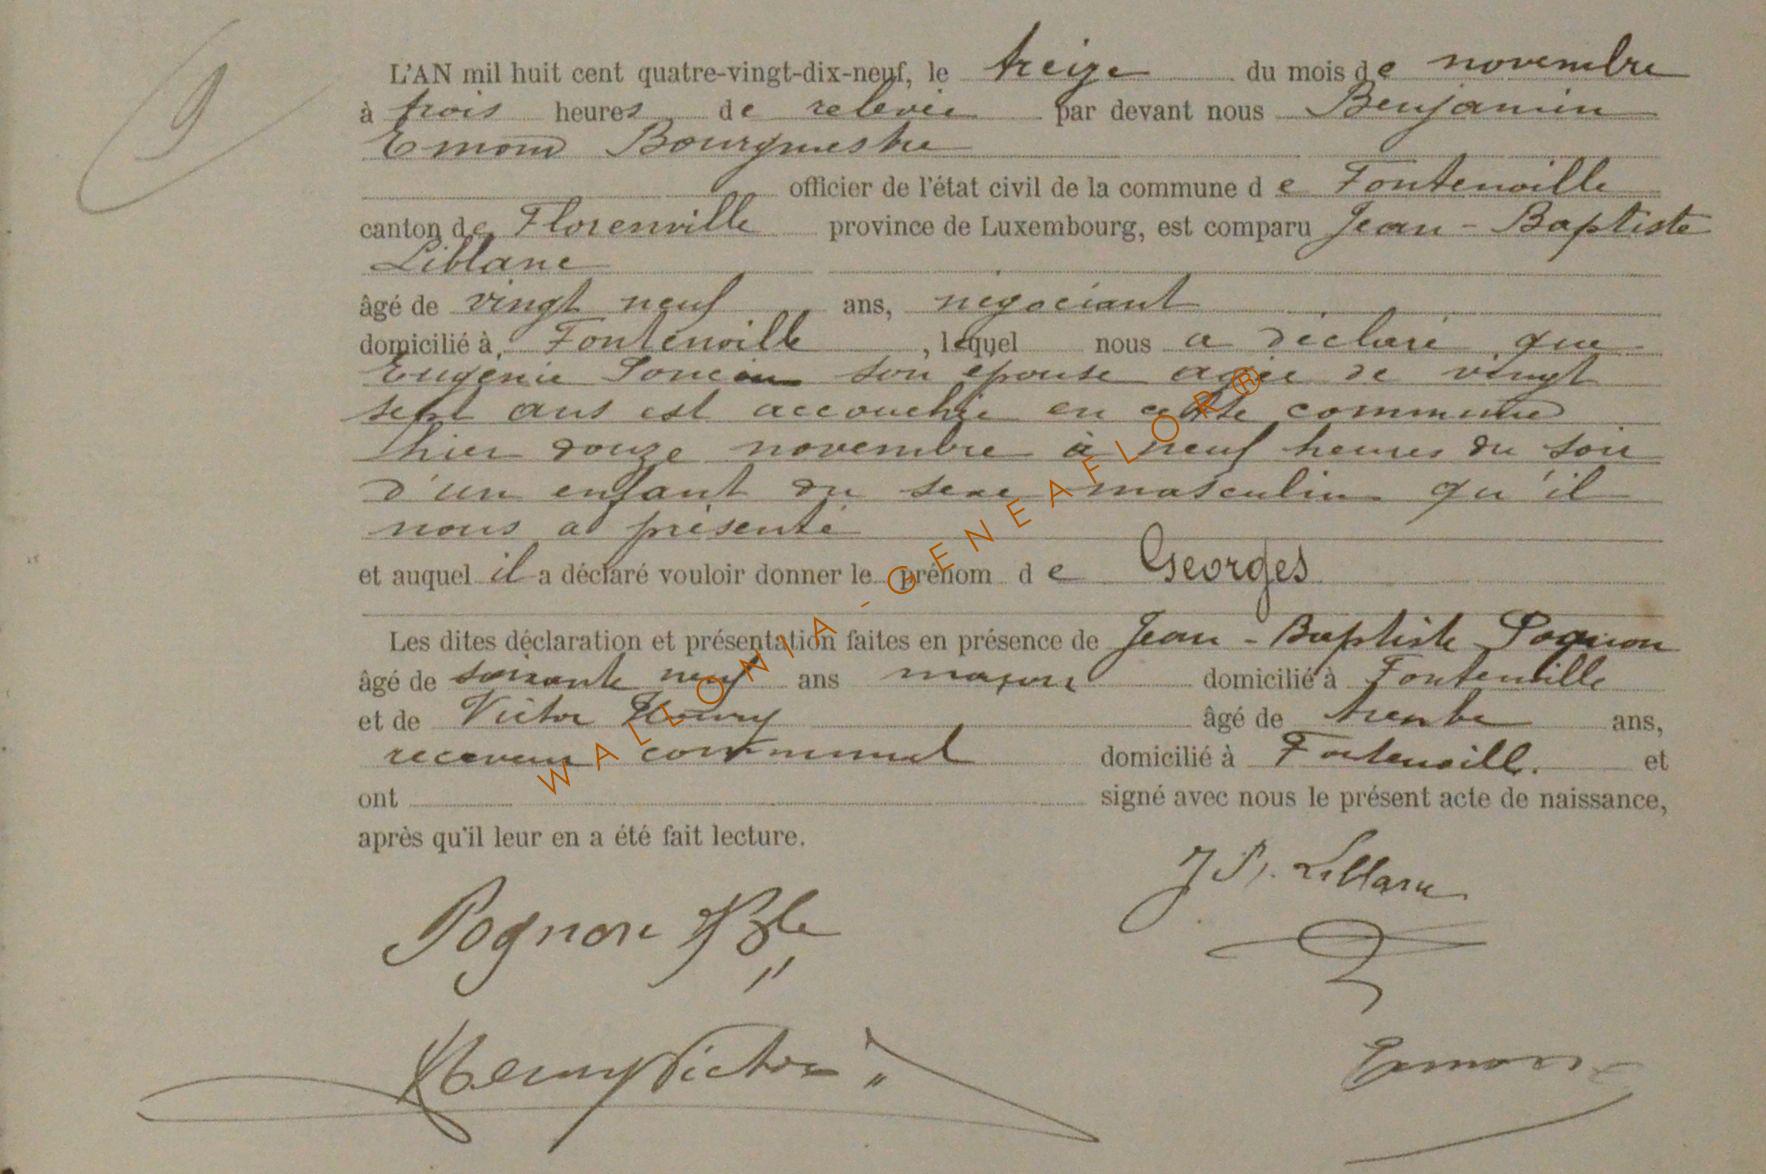 9
L'AN mil huit cent quatre-vingt-dix-neuf, le treize du mois de novembre
à trois heures de relevée par devant nous Benjamin
Emond Bourgmestre
officier de l'état civil de la commune de Fontenoille
canton de Florenville province de Luxembourg, est comparu Jean-Baptiste
Leblanc
âgé de vingt neuf ans, négociant
domicilié à, Fontenoille, lequel nous a déclaré que
Eugénie son épouse agée de vingt
sept ans est accouchée en cette commune
hier douze novembre à neuf heures du soir
d'un enfant du sexe masculin qu'il
nous a présenté
et auquel il a déclaré vouloir donner le prénom de Georges
Les dites déclaration et présentation faites en présence de Jean-Baptiste Pognon
âgé de soixante neuf ans maçon domicilié à Fontenoille
et de Victor Henry âgé de trente ans,
receveur communal domicilié à Fontenoille. et
ont signé avec nous le présent acte de naissance,
après qu'il leur en a été fait lecture.
J. B. Leblanc
Pognon JBte
Henry Victor
Emond
WALLONIA-GENEAFLOR®